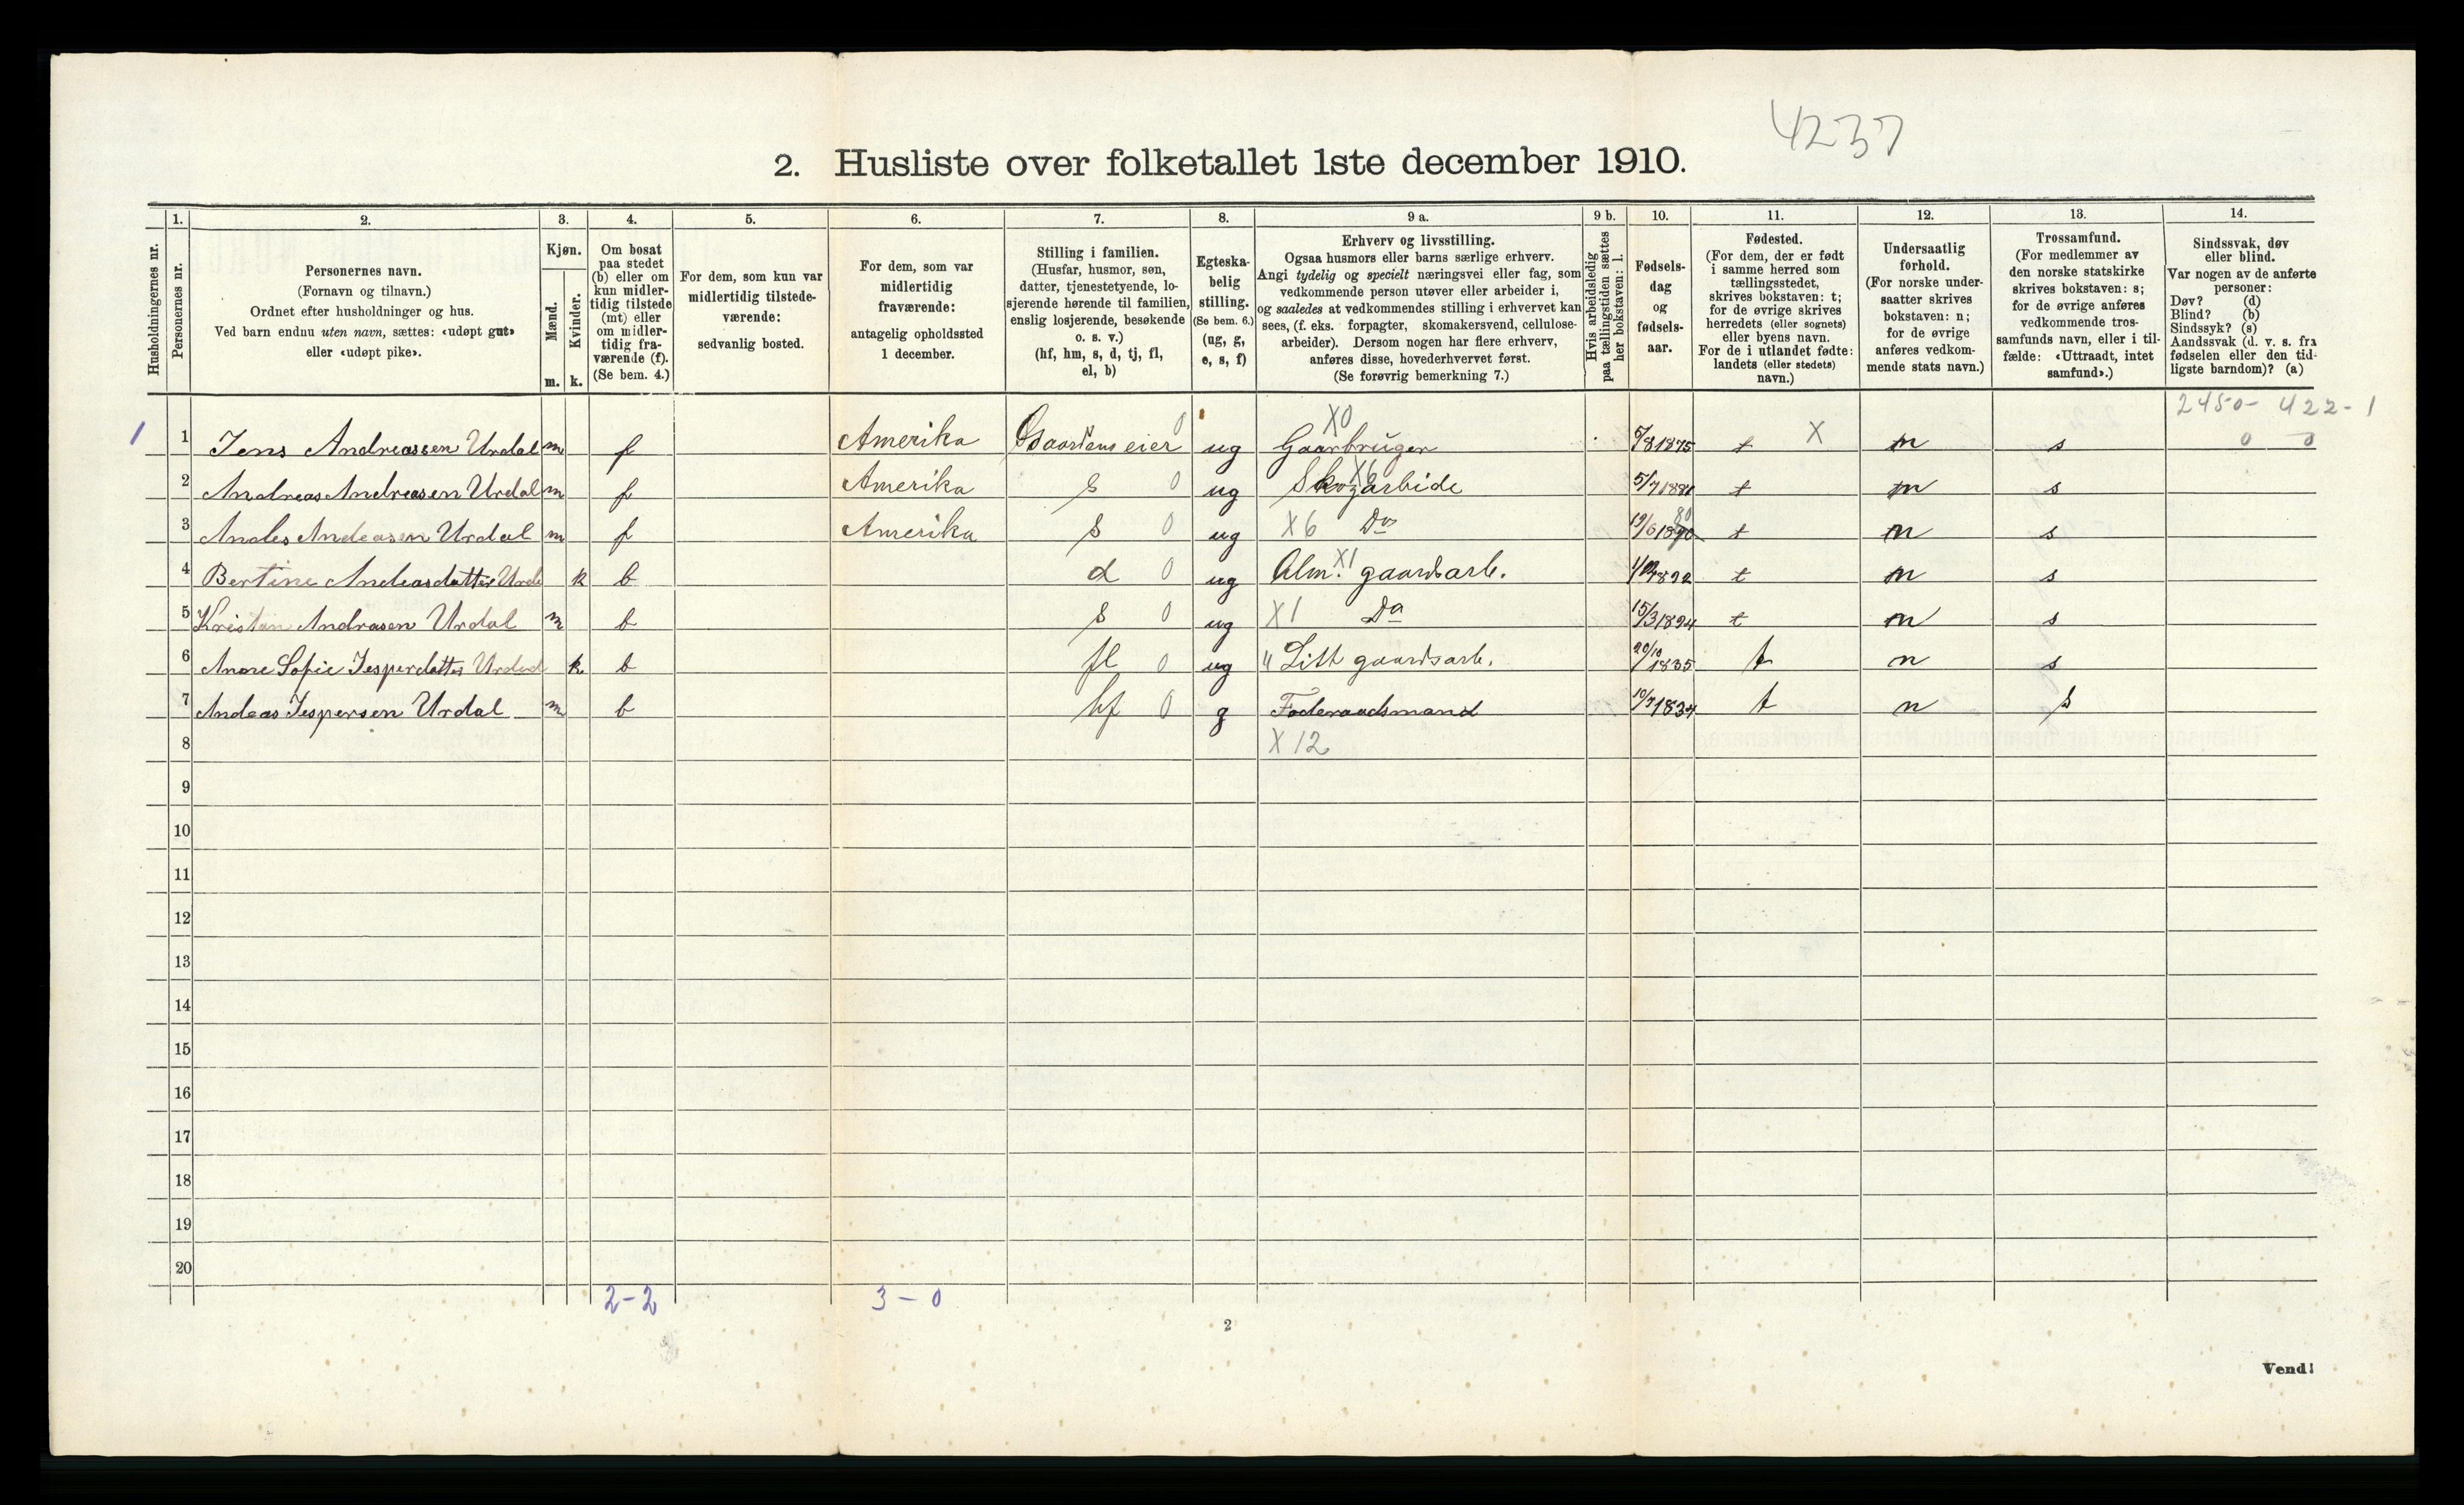 4237
2. Husliste over folketallet 1ste december 1910.
Husholdningernes nr.
1.
Personernes nr.
2.
Personernes navn.
(Fornavn og tilnavn.)
Ordnet efter husholdninger og hus.
Ved barn endnu uten navn, sættes: «udøpt gut»
eller «udøpt pike».
3.
Kjøn.
Mænd.
Kvinder.
m. k.
4.
Om bosat
paa stedet
(b) eller om
kun midler-
tidig tilstede
(mt) eller
om midler-
tidig fra-
værende (f).
(Se bem. 4.)
5.
For dem, som kun var
midlertidig tilstede-
værende:
sedvanlig bosted.
6.
For dem, som var
midlertidig
fraværende:
antagelig opholdssted
1 december.
7.
Stilling i familien.
(Husfar, husmor, søn,
datter, tjenestetyende, lo-
sjerende hørende til familien,
enslig losjerende, besøkende
o. s. v.)
(hf, hm, s, d, tj, fl,
el, b)
8.
Egteska-
belig
stilling.
(Se bem. 6.)
(ug, g,
e, s, f)
9 a.
Erhverv og livsstilling.
Ogsaa husmors eller barns særlige erhverv.
Angi tydelig og specielt næringsvei eller fag, som
vedkommende person utøver eller arbeider i,
og saaledes at vedkommendes stilling i erhvervet kan
sees, (f. eks. forpagter, skomakersvend, cellulose-
arbeider). Dersom nogen har flere erhverv,
anføres disse, hovederhvervet først.
(Se forøvrig bemerkning 7.)
9 b.
Hvis arbeidsledig
paa tællingstiden sættes
her bokstaven: l.
10.
Fødsels-
dag
og
fødsels-
aar.
11.
Fødested.
(For dem, der er født
i samme herred som
tællingsstedet,
skrives bokstaven: t;
for de øvrige skrives
herredets (eller sognets)
eller byens navn.
For de i utlandet fødte:
landets (eller stedets)
navn.)
12.
Undersaatlig
forhold.
(For norske under-
saatter skrives
bokstaven: n;
for de øvrige
anføres vedkom-
mende stats navn.)
13.
Trossamfund.
(For medlemmer av
den norske statskirke
skrives bokstaven: s;
for de øvrige anføres
vedkommende tros-
samfunds navn, eller i til-
fælde: «Uttraadt, intet
samfund».)
14.
Sindssvak, døv
eller blind.
Var nogen av de anførte
personer:
Døv? (d)
Blind? (b)
Sindssyk? (s)
Aandssvak (d. v. s. fra
fødselen eller den tid-
ligste barndom)? (a)
2450- 422-1
X0
1 1 Jens Andreassen Urdal m f Amerika Gaardens eier 0 ug Gaarbruger 5/8 1875 t X n s 0 0
2 Andreas Andreasen Urdal m f Amerika s 0 ug Skogarbide X6 5/7 1881 t n s
3 Andes Andeasen Urdal m f Amerika s 0 ug X6 Do 19/6 1890 80 t n s
4 Bertine Andeasdatter Urda k b d 0 ug Alm. X1 gaardsarb. 1892 t n s
5 Kristan Andrasen Urdal m b s 0 ug X1 Do 15/3 1894 t n s
6 Anne Sofie Jesperdatter Urdal k b fl 0 ug " Litt gaardsarb. 20/10 1835 t n s
7 Andeas Jespersen Urdal m b hf 0 g Føderaadsmand 10/7 1834 t n s
8 X 12
9
10
11
12
13
14
15
16
17
18
19
20
2-2 3-0
2
Vend!